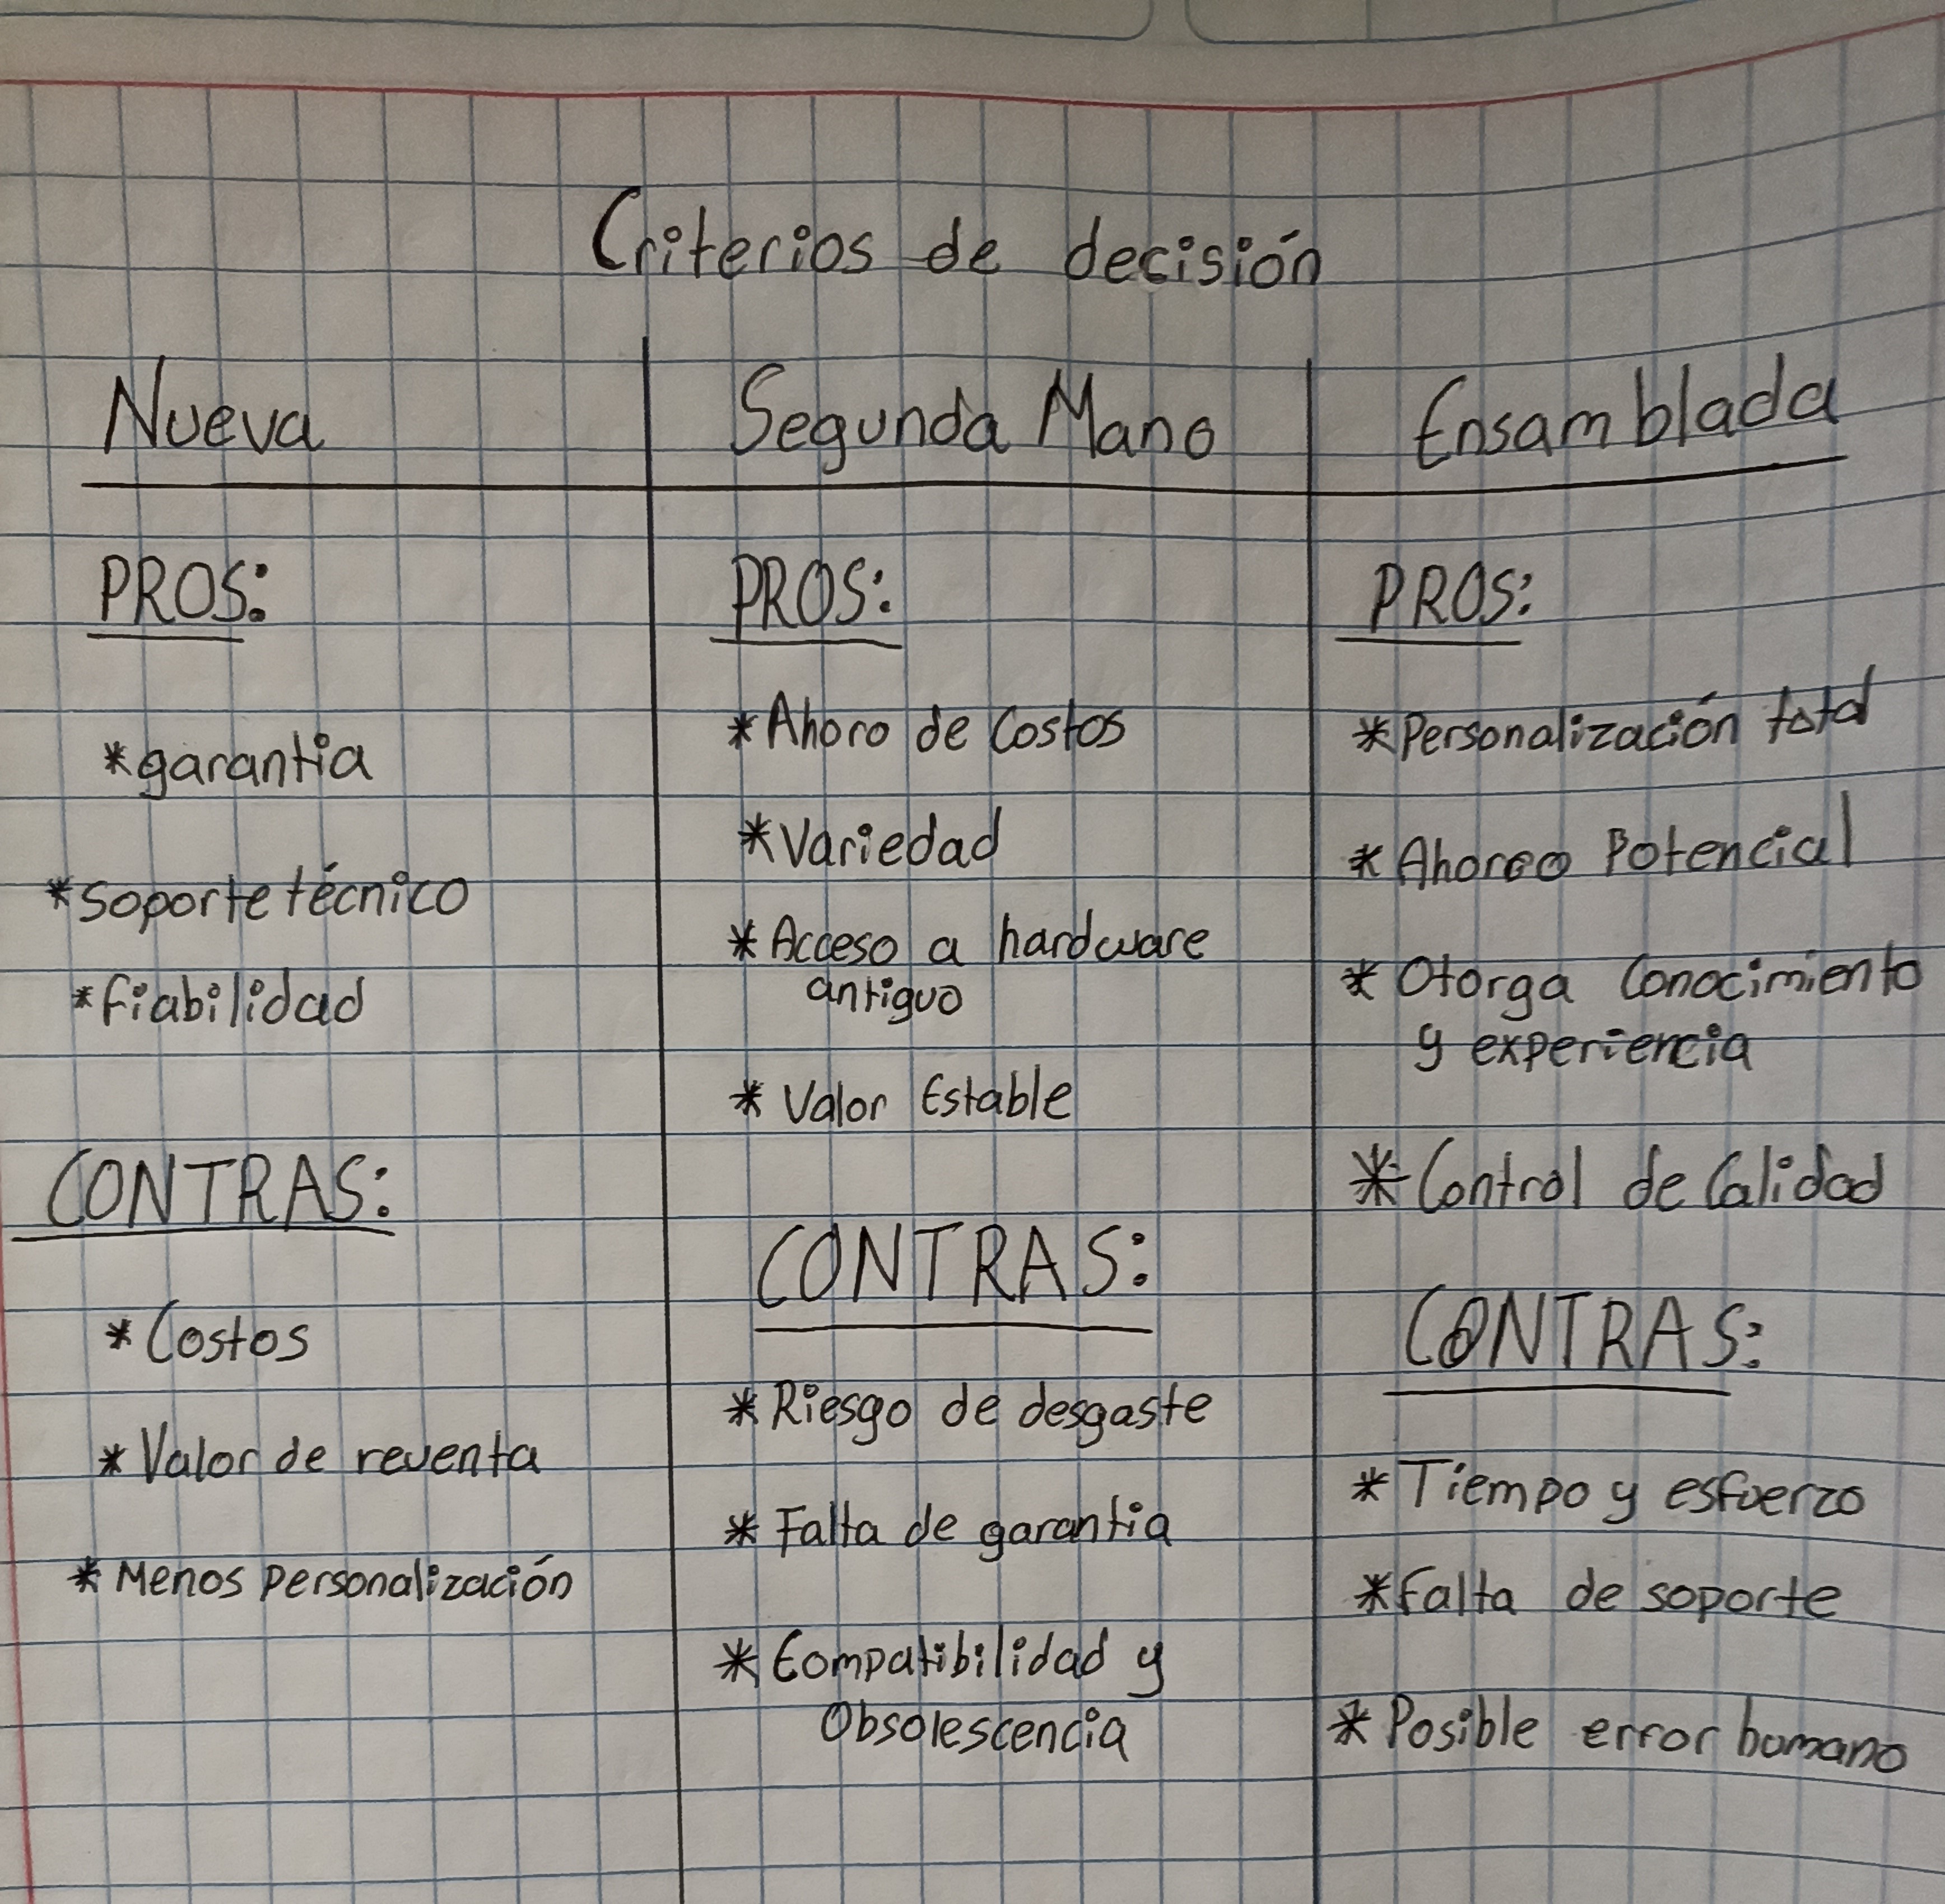 Criterios de decisión
Nueva
PROS:
*garantia
*soporte técnico
*fiabilidad
CONTRAS:
*Costos
*Valor de reventa
*Menos personalización
Segunda Mano
PROS:
*Ahoro de costos
*Variedad
*Acceso a hardware
antiguo
*Valor Estable
CONTRAS:
*Riesgo de desgaste
*Falta de garantia
*Compatibilidad y
Obsolescencia
Ensamblada
PROS:
*Personalización total
*Ahorro Potencial
*Otorga Conocimiento
y experiencia
*Control de Calidad
CONTRAS:
*Tiempo y esfuerzo
*Falta de soporte
*Posible error humano